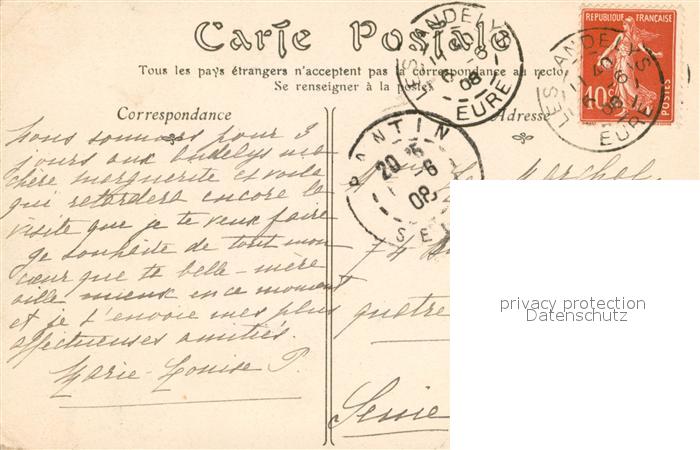 Carte Postale
Tous les pays étrangers n'acceptent pas la correspondance au recto
Se renseigner à la poste
REPUBLIQUE FRANÇAISE
10c
POSTES
LES ANDELYS
11 40
6 - 6
08
EURE
LES ANDELYS
11 40
6 - 6
08
EURE
Correspondance
Adresse
PANTIN
20
6
08
SEI
Nous sommes pour 3
jours aux andelys ma
chère marguerite et voila
qui retardera encore la
visite que je te veux faire
Je souhaite de tout mon
cœur que ta belle-mère
aille mieux en ce moment
et je t'envoie mes plus
affectueuses amitiés.
Marie-Louise P.
Marchal
74
quatre
Seine
privacy protection
Datenschutz